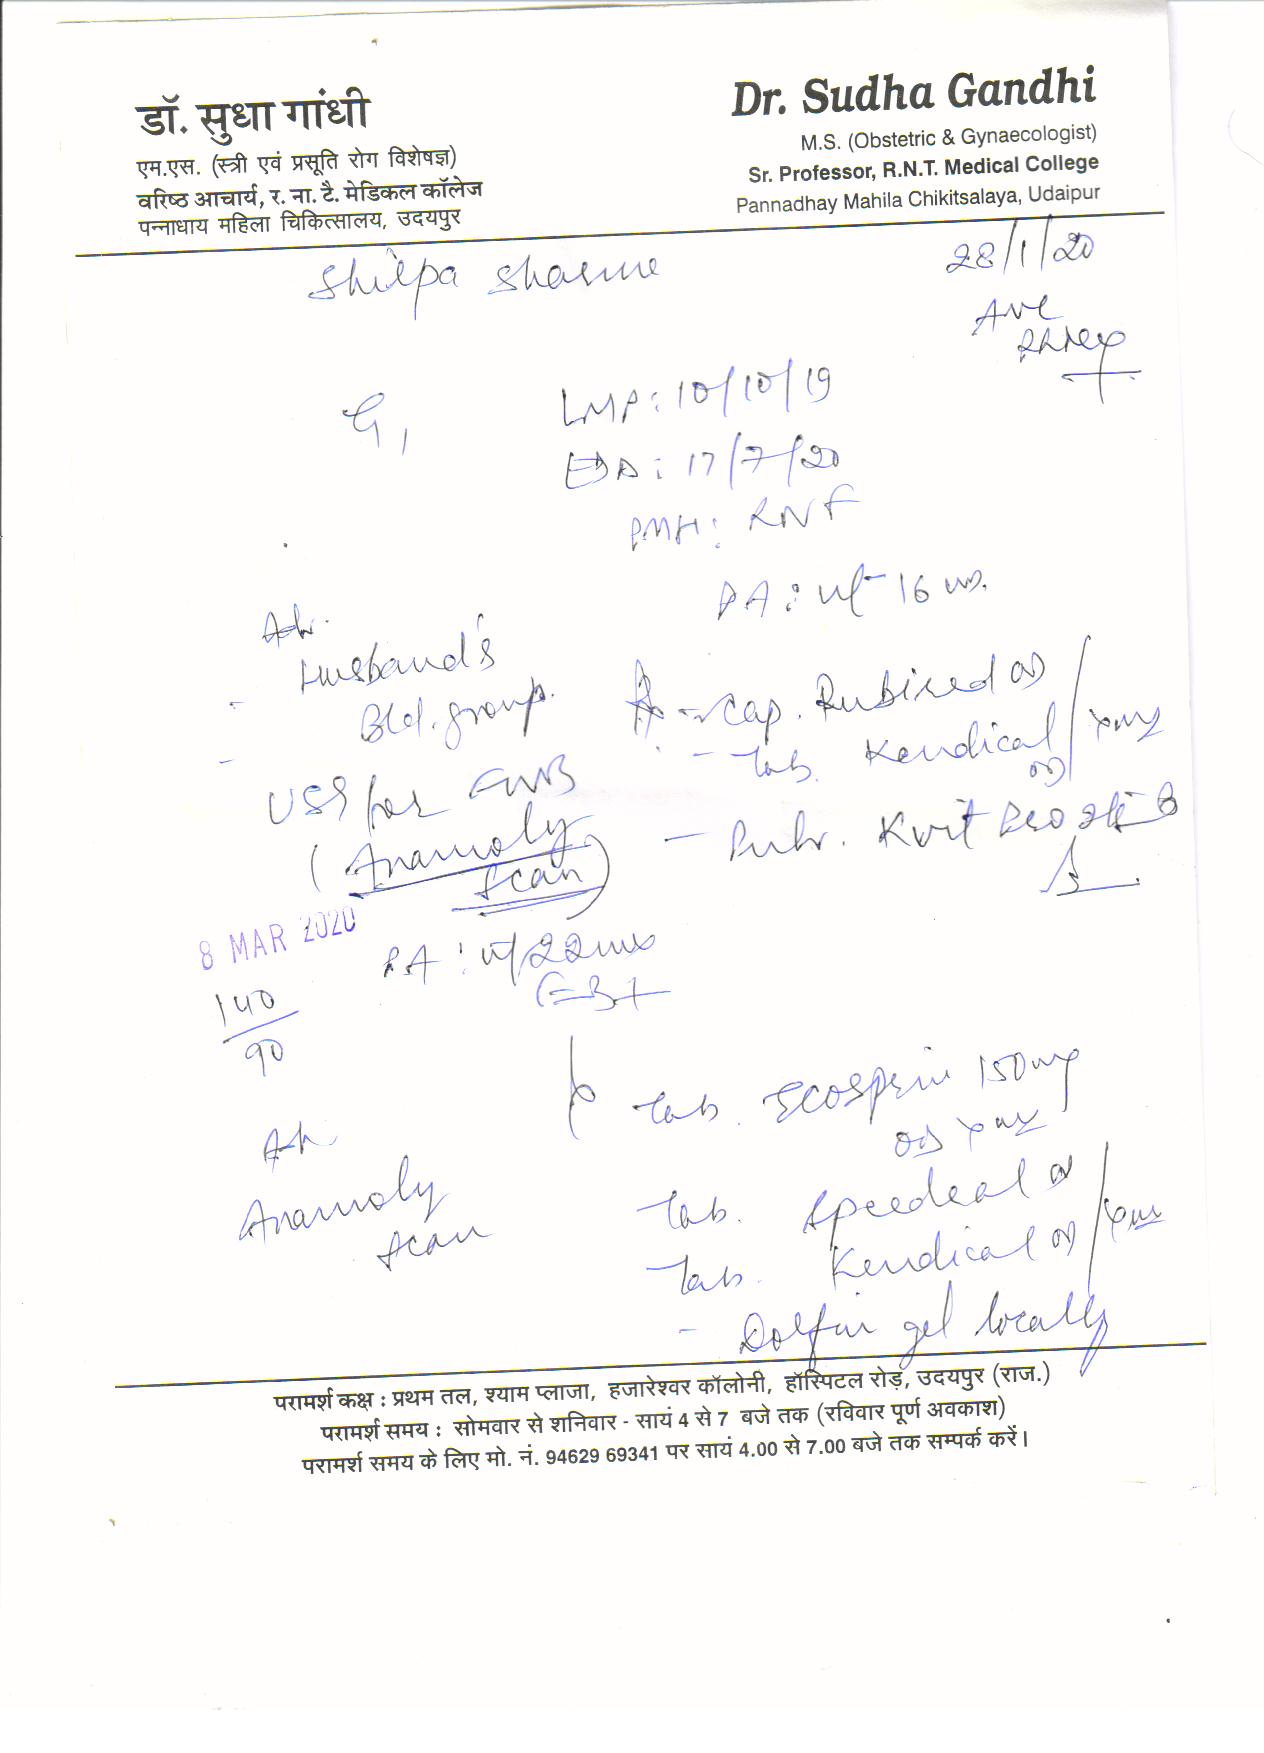 डॉ. सुधा गांधी
एम.एस. (स्त्री एवं प्रसूति रोग विशेषज्ञ)
वरिष्ठ आचार्य, र. ना. टै. मेडिकल कॉलेज
पन्नाधाय महिला चिकित्सालय, उदयपुर
Dr. Sudha Gandhi
M.S. (Obstetric & Gynaecologist)
Sr. Professor, R.N.T. Medical College
Pannadhay Mahila Chikitsalaya, Udaipur
Shilpa Sharma
28/1/20
G1
LMP: 10/10/19
EDD: 17/7/20
PMH:
PA: 16
Adv.
- Husband's
Bld. group.
- USG for FWB
(Anamoly
Scan)
- Cap. Rubired OD
- Tab. Kendical
OD
- Kvit
8 MAR 2020
140
90
PA: 22
Tab. Ecosprin 150mg
OD
Adv
Anamoly
Scan
Tab.
Tab. Kendical
- Dolfin gel locally
परामर्श कक्ष : प्रथम तल, श्याम प्लाजा, हजारेश्वर कॉलोनी, हॉस्पिटल रोड़, उदयपुर (राज.)
परामर्श समय : सोमवार से शनिवार - सायं 4 से 7 बजे तक (रविवार पूर्ण अवकाश)
परामर्श समय के लिए मो. नं. 94629 69341 पर सायं 4.00 से 7.00 बजे तक सम्पर्क करें।